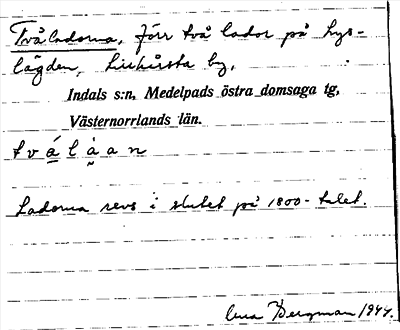 Två ladorna, förr två lador på Lys-
lägden, Liehårsta by,
Indals s:n, Medelpads östra domsaga tg,
Västernorrlands län.
t v á l à a n
Ladorna revs i slutet på 1800-talet.
Lena Bergman 1944.